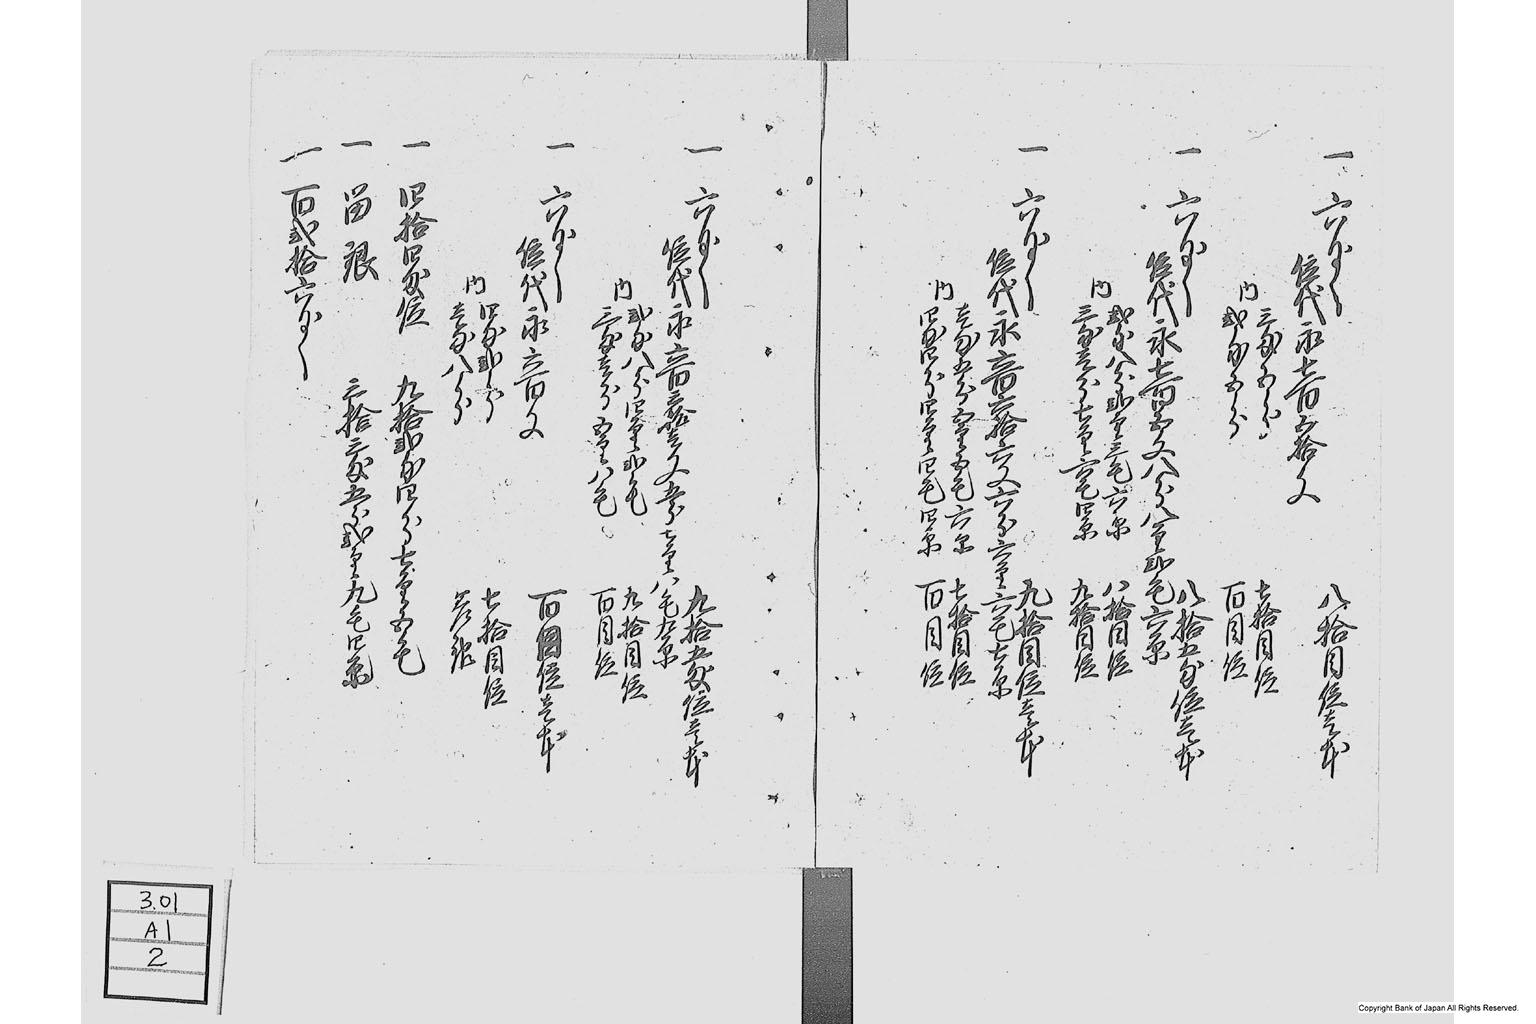 一 六匁
位代永七百五拾文 八拾目位壱本
内
三匁五分 七拾目位
弐匁五分 百目位
一 六匁
位代永七百五文八分八厘弐毛六糸 八拾五匁位壱本
内
弐匁八分弐厘三毛六糸 八拾目位
三匁壱分七厘六毛四糸 九拾目位
一 六匁
位代永六百六拾六文六分六厘六毛七糸 九拾目位壱本
内
壱匁五分五厘五毛六糸 七拾目位
四匁四分四厘四毛四糸 百目位
一 六匁
位代永六百三拾壱文五分七厘八毛九糸 九拾五匁位壱本
内
弐匁八分四厘弐毛 九拾目位
三匁壱分五厘八毛 百目位
一 六匁
位代永六百文 百目位壱本
内
四匁弐分 七拾目位
壱匁八分
一 四拾四匁位 九拾弐匁四分七厘五毛
一 留粮 三拾三匁五分弐厘九毛四糸
一 百弐拾六匁
3.01
A1
2
Copyright Bank of Japan All Rights Reserved.